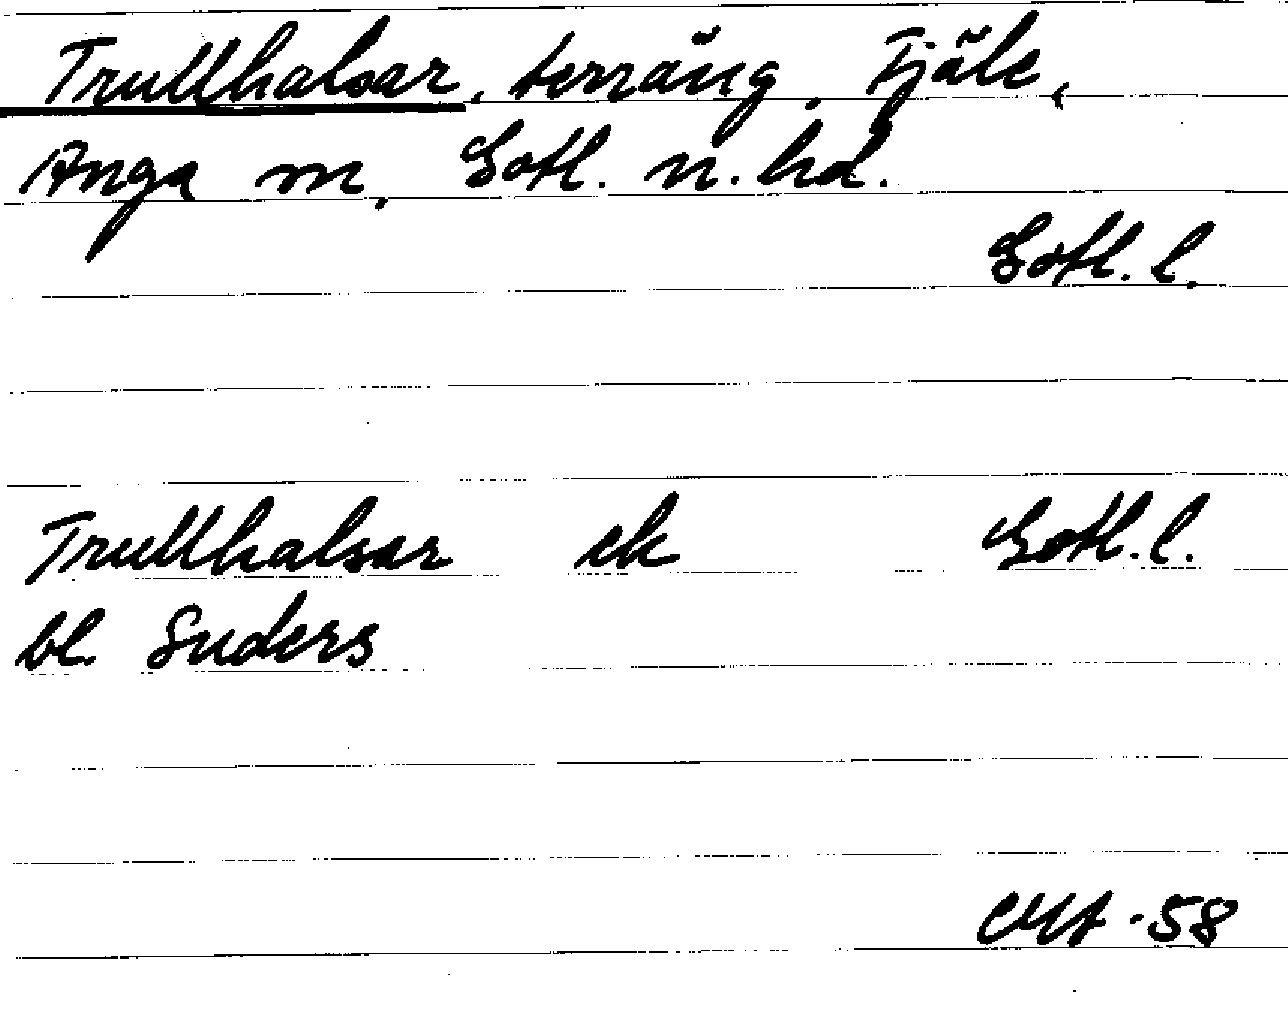 Trullhalsar, terräng, Fjäle,
Anga sn, Gotl. n. hd.
Gotl. l.
Trullhalsar ek Gotl. l.
bl. Suders
-58